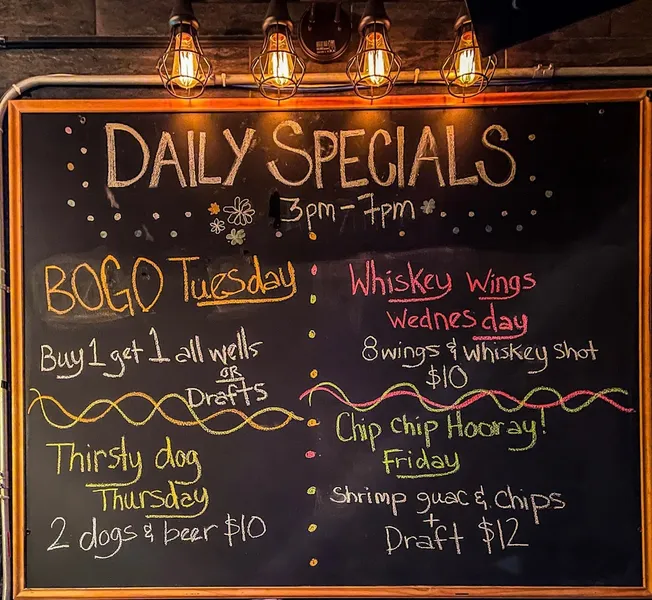 DAILY SPECIALS
3pm-7pm
BOGO Tuesday
Buy 1 get 1 all wells
OR
Drafts
Whiskey Wings
Wednesday
8 wings & whiskey shot
$10
Thirsty dog
Thursday
2 dogs & beer $10
Chip chip Hooray!
Friday
Shrimp guac & chips
+
Draft $12